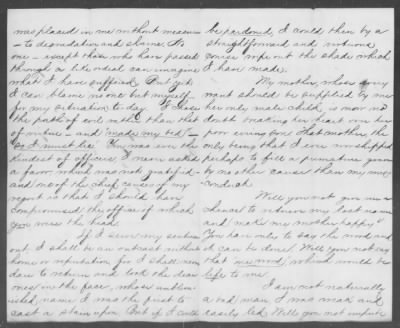 was placed in me without measure
— to degradation and shame. No
one — except those who have passed
through a like ordeal can imagine
what I have suffered. But yet
I can blame no one but myself
for my situation to day. I chose
the path of evil rather than that
of virtue — and "made my bed" —
so I must lie. You was ever the
kindest of officers. I never asked
a favor which was not gratified —
and one of the chief causes of my
regret is that I should have
compromised the office of which
you were the head.
If I serve my sentence
out I shall be an outcast without
home or reputation for I shall never
dare to return and look the dear
ones in the face, whose unblem-
ished name I was the first to
cast a stain upon. But if I could
be pardoned, I could then by a
straightforward and natural
course wipe out the shade which
I have made.
My mother, whose every
want should be supplied by me
her only male child, is now no
doubt breaking her heart over her
poor erring son. That mother the
only being that I ever worshipped
perhaps to fill a premature grave
by no other cause than my mis-
conduct.
Will you not give me a
chance to retrieve my lost name
and make my mother happy?
You have only to say the word and
it can be done. Will you not say
that one word, which would be
life to me.
I am not naturally
a bad man. I was mad and
easily led. Will you not